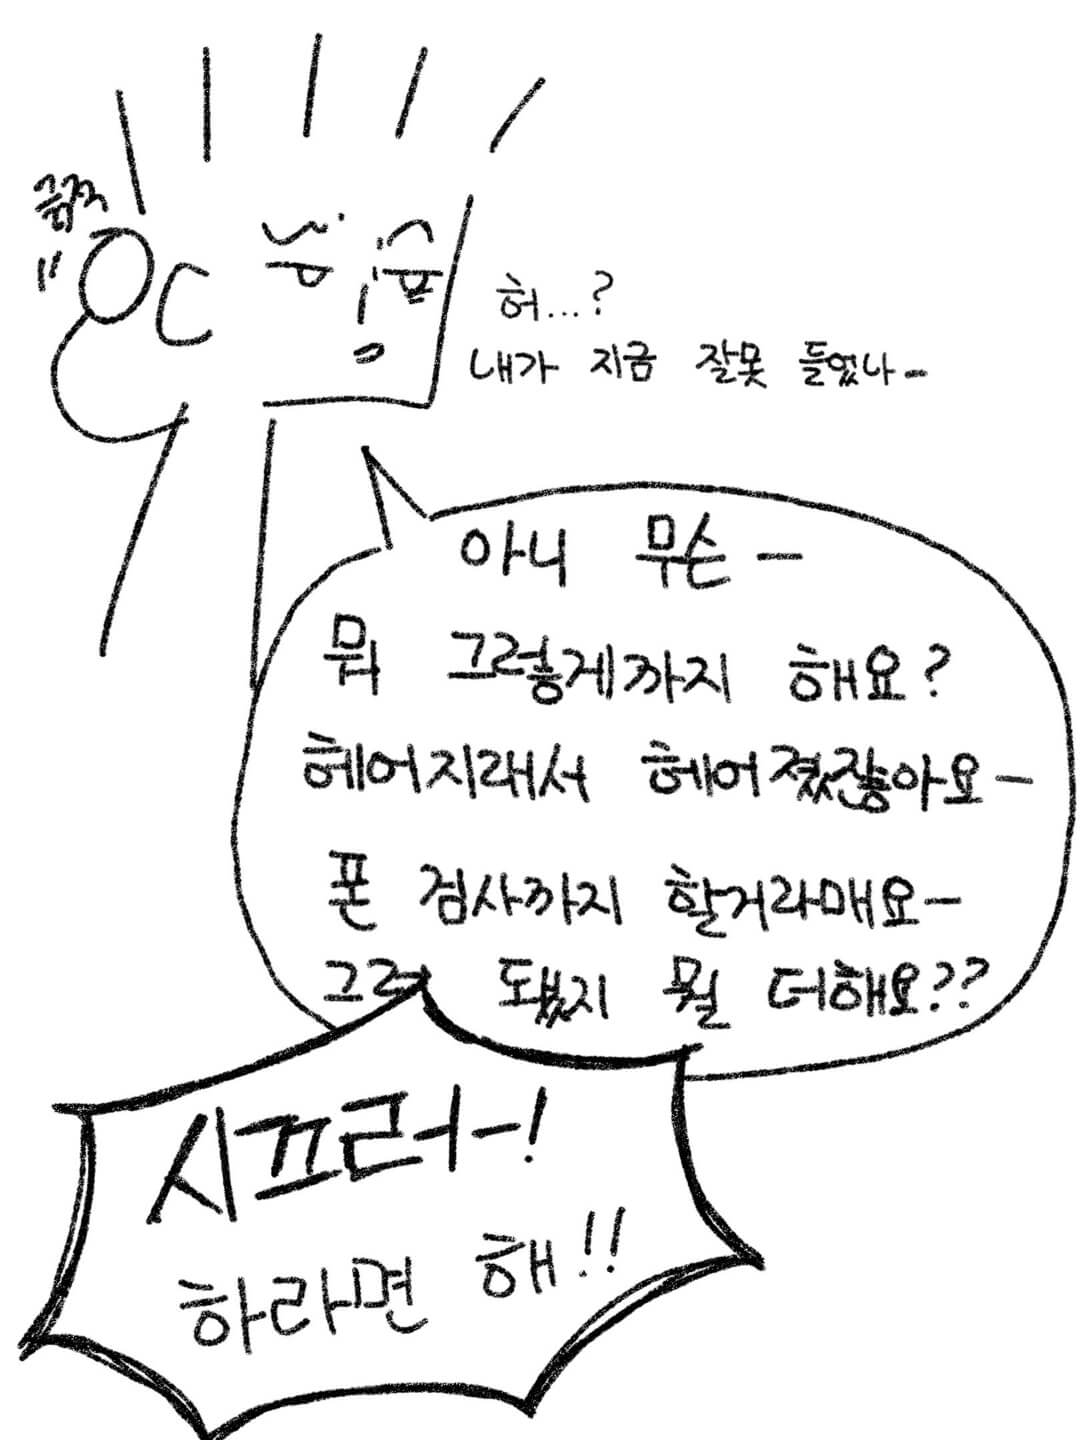 허...?
내가 지금 잘못 들었나-
아니 무슨-
뭐 그렇게까지 해요?
헤어지래서 헤어졌잖아요-
폰 검사까지 할거라매요-
됐지 뭘 더해요??
시끄러-!
하라면 해!!